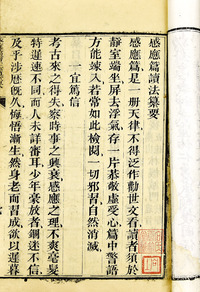 感應篇讀法纂要
感應一篇是天律不得泛作勸世文看讀者須於
靜室端坐屏去浮氣存一片恭敬虛受心篇中警語
方能竦入若常如此檢閱一切邪習自然消滅
一宜篤信
考古來之得失察時事之興衰感應之理不爽毫髮
特遲速不同而人未詳審耳少年豪放者錮迷不信
及乎涉歷旣久悔悟漸生然身老而習成欲以遲暮